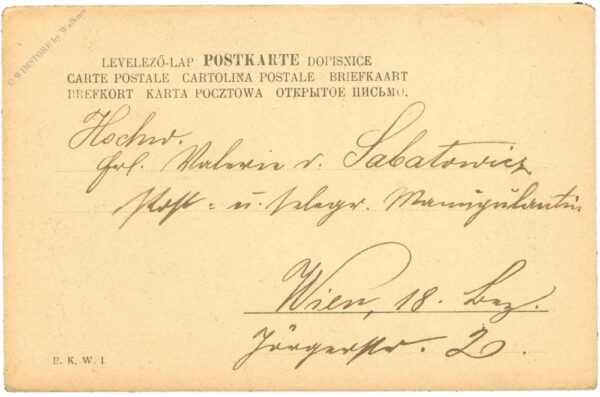 © WIMSTORE by Walkner
LEVELEZŐ-LAP POSTKARTE DOPISNICE
CARTE POSTALE CARTOLINA POSTALE BRIEFKAART
BREFKORT KARTA POCZTOWA ОТКРЫТОЕ ПИСЬМО.
Hochw.
Frl. Valerie v. Sabatowicz
Post = u. telegr. Manipulantin
Wien, 18. Bez.
Jörgerstr. 2
B. K. W. I.